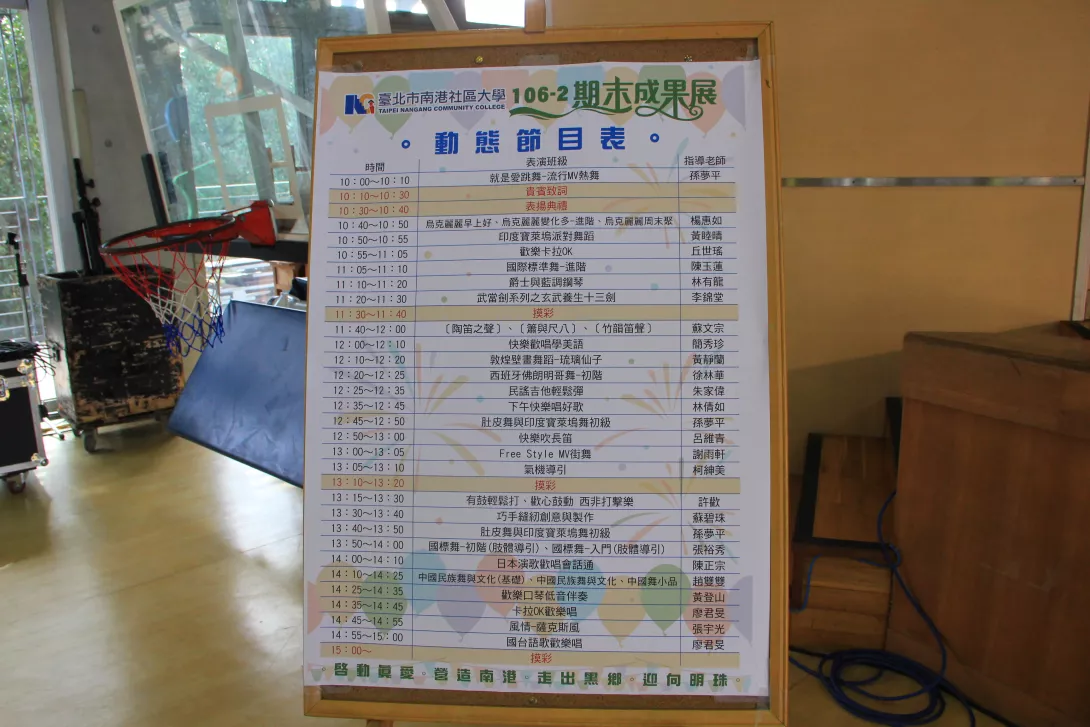 臺北市南港社區大學 106-2 期末成果展
TAIPEI NANGANG COMMUNITY COLLEGE
。動態節目表。
時間 表演班級 指導老師
10：00～10：10 就是愛跳舞-流行MV熱舞 孫夢平
10：10～10：30 貴賓致詞
10：30～10：40 表揚典禮
10：40～10：50 烏克麗麗早上好、烏克麗麗變化多-進階、烏克麗麗周末聚 楊惠如
10：50～10：55 印度寶萊塢派對舞蹈 黃睦晴
10：55～11：05 歡樂卡拉OK 丘世瑤
11：05～11：10 國際標準舞-進階 陳玉蓮
11：10～11：20 爵士與藍調鋼琴 林有龍
11：20～11：30 武當劍系列之玄武養生十三劍 李錦堂
11：30～11：40 摸彩
11：40～12：00 〔陶笛之聲〕、〔簫與尺八〕、〔竹韻笛聲〕 蘇文宗
12：00～12：10 快樂歡唱學美語 簡秀珍
12：10～12：20 敦煌壁畫舞蹈-琉璃仙子 黃靜蘭
12：20～12：25 西班牙佛朗明哥舞-初階 徐林華
12：25～12：35 民謠吉他輕鬆彈 朱家偉
12：35～12：45 下午快樂唱好歌 林倩如
12：45～12：50 肚皮舞與印度寶萊塢舞初級 孫夢平
12：50～13：00 快樂吹長笛 呂維青
13：00～13：05 Free Style MV街舞 謝雨軒
13：05～13：10 氣機導引 柯紳美
13：10～13：20 摸彩
13：15～13：30 有鼓輕鬆打、歡心鼓動 西非打擊樂 許歡
13：30～13：40 巧手縫紉創意與製作 蘇碧珠
13：40～13：50 肚皮舞與印度寶萊塢舞初級 孫夢平
13：50～14：00 國標舞-初階(肢體導引)、國標舞-入門(肢體導引) 張裕秀
14：00～14：10 日本演歌歡唱會話通 陳正宗
14：10～14：25 中國民族舞與文化(基礎)、中國民族舞與文化、中國舞小品 趙雙雙
14：25～14：35 歡樂口琴低音伴奏 黃登山
14：35～14：45 卡拉OK歡樂唱 廖君旻
14：45～14：55 風情-薩克斯風 張宇光
14：55～15：00 國台語歌歡樂唱 廖君旻
15：00～ 摸彩
。啓動眞愛。營造南港。走出黑鄉。迎向明珠。